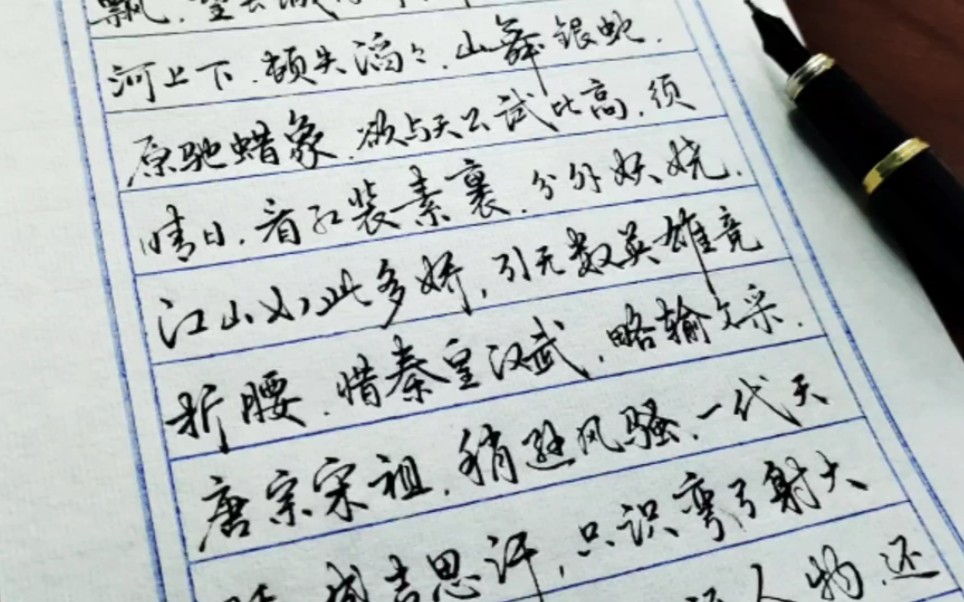 飘.望长城
河上下.顿失滔々.山舞银蛇.
原驰蜡象.欲与天公试比高.须
晴日.看红装素裹.分外妖娆.
江山如此多娇,引无数英雄竞
折腰.惜秦皇汉武.略输文采.
唐宗宋祖.稍逊风骚.一代天
骄成吉思汗,只识弯弓射大
人物.还